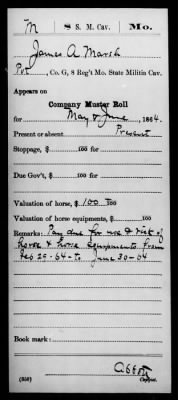 M 8 S. M. Cav. Mo.
James A Marsh
Pvt, Co. G, 8 Reg't Mo. State Militia Cav.
Appears on
Company Muster Roll
for May & June, 1864.
Present or absent Present
Stoppage, $ 100 for
Due Gov't, $ 100 for
Valuation of horse, $ 100 100
Valuation of horse equipments, $ 100
Remarks: Pay due for use & risk of
horse & horse equipments from
Feb 29-64 to June 30-64
Book mark:
(359) Copyist.